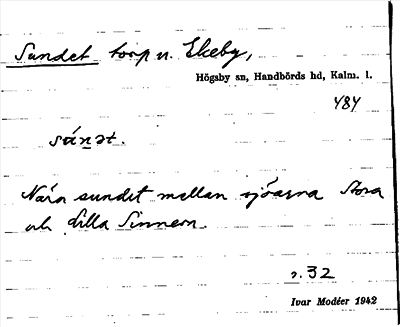 Sundet torp u. Ekeby,
Högsby sn, Handbörds hd, Kalm. l.
484
súnət.
Nära sundet mellan sjöarna Stora
och Lilla Sinnern.
s. 32
Ivar Modéer 1942